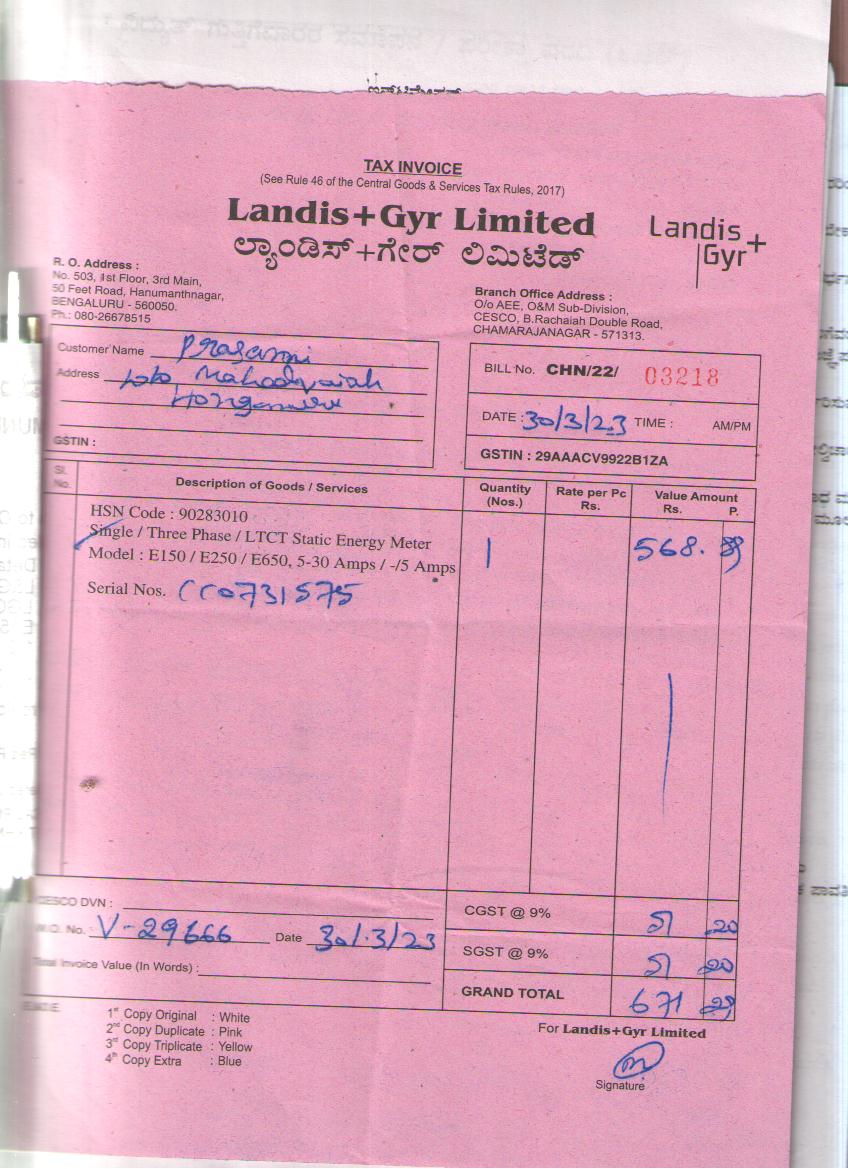 TAX INVOICE
(See Rule 46 of the Central Goods & Services Tax Rules, 2017)
Landis+Gyr Limited
ಲ್ಯಾಂಡಿಸ್+ಗೇರ್ ಲಿಮಿಟೆಡ್
Landis
Gyr+
R. O. Address :
No. 503, 1st Floor, 3rd Main,
50 Feet Road, Hanumanthnagar,
BENGALURU - 560050.
Ph.: 080-26678515
Branch Office Address :
O/o AEE, O&M Sub-Division,
CESCO, B.Rachaiah Double Road,
CHAMARAJANAGAR - 571313.
Customer Name
Address
GSTIN :
BILL No. CHN/22/ 03218
DATE : 30/3/23 TIME : AM/PM
GSTIN : 29AAACV9922B1ZA
Sl. No. Description of Goods / Services Quantity (Nos.) Rate per Pc Rs. Value Amount Rs. P.
HSN Code : 90283010
Single / Three Phase / LTCT Static Energy Meter
Model : E150 / E250 / E650, 5-30 Amps / -/5 Amps 1 568.
Serial Nos. CC0731575
CESCO DVN :
No. V-29666 Date 30/3/23
Total Invoice Value (In Words) :
CGST @ 9% 51 .20
SGST @ 9% 51 20
GRAND TOTAL 671
1st Copy Original : White
2nd Copy Duplicate : Pink
3rd Copy Triplicate : Yellow
4th Copy Extra : Blue
For Landis+Gyr Limited
Signature